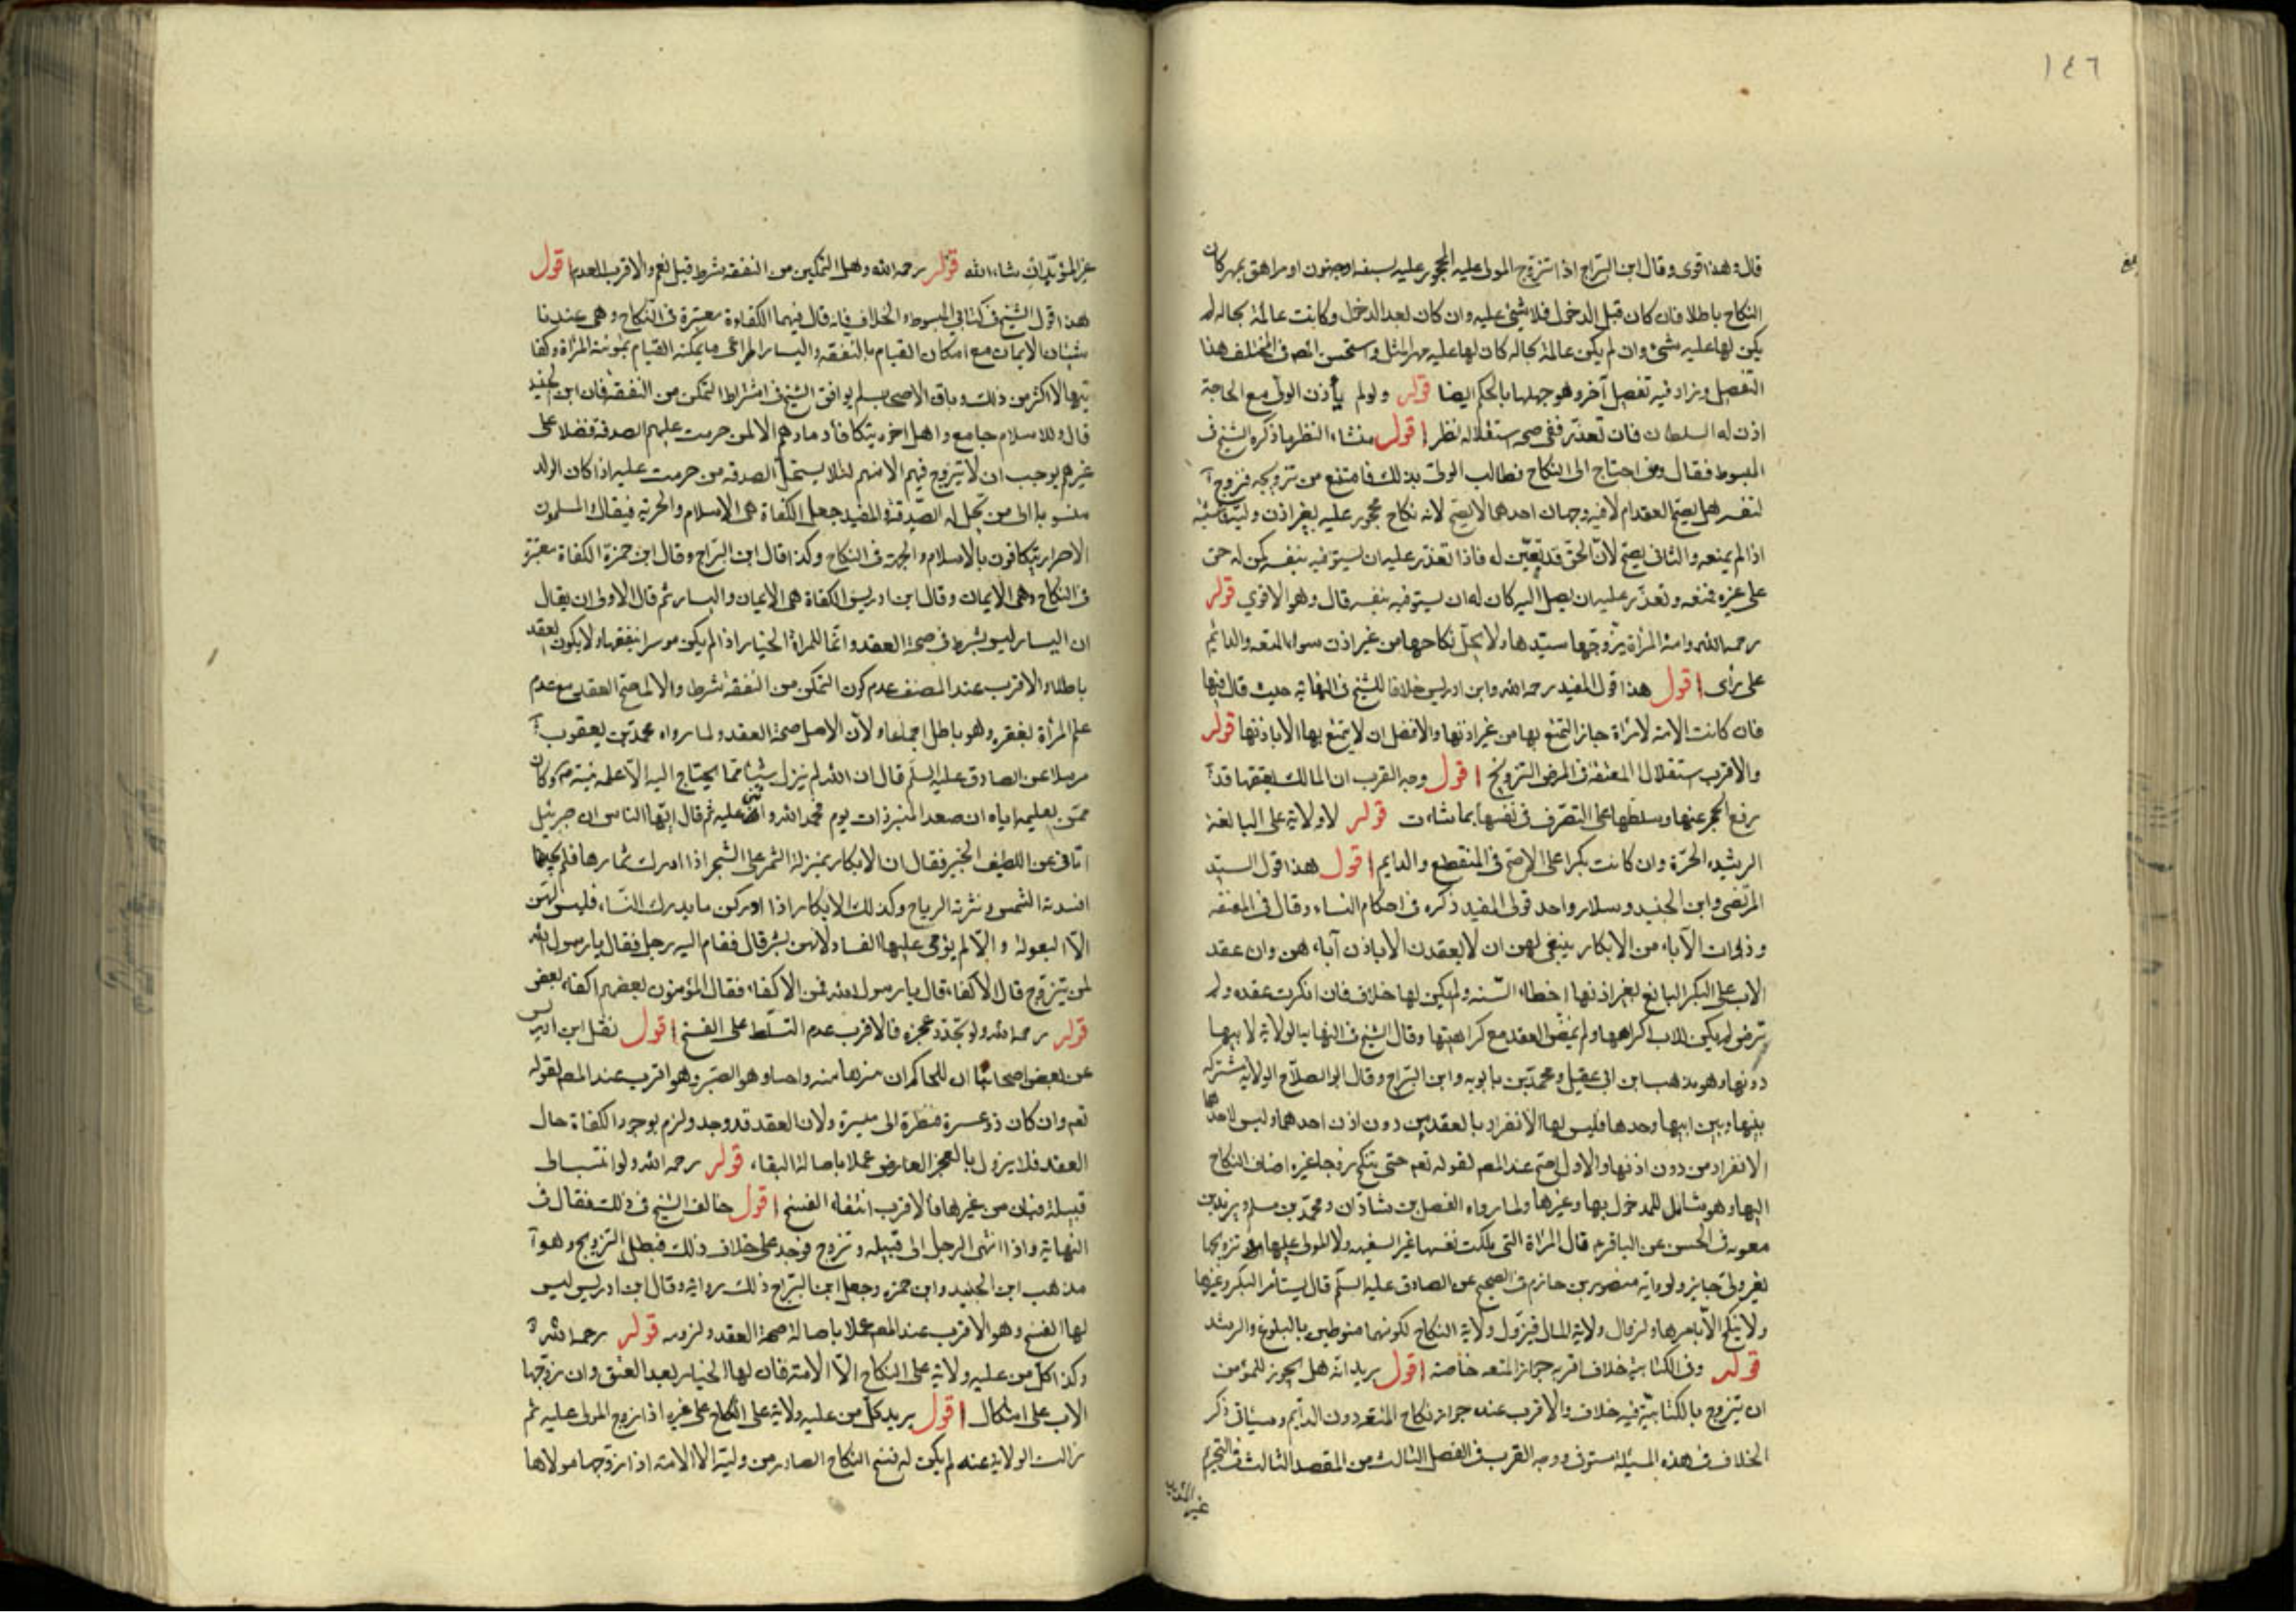 ١٤٦
قال وهذا قوى وقال ابن البراج اذا تزوج المولى عليه المحجور عليه لسفه اوجنون اومراهق بمهر كان
النكاح باطلا فان كان قبل الدخول فلا شئ عليه وان كان بعد الدخول وكانت عالمة بحاله لم
يكن لها عليه شئ وان لم يكن عالمة بحاله كان لها عليه مهر المثل واستحسن المصـ فى المختلف هذا
التفصيل وزاد فيه تفصيل آخر وهو جهلها بالحكم ايضا قوله ولو لم يأذن الولى مع الحاجة
اذن له السلطان فان تعذر ففى صحة استقلاله نظر اقول منشاء النظر ما ذكره الشيخ فى
المبسوط فقال ومن احتاج الى النكاح فطالب الولى بذلك فامتنع من تزويجه فتزوج
لنفسه هل يصح العقد ام لا فيه وجهان احدهما لا يصح لانه نكاح محجور عليه بغير اذن وليه
اذا لم يمنعه والثانى يصح لان الحق قد تعين له فاذا تعذر عليه ان يستوفيه بنفسه كمن له حق
على غيره فمنعه وتعذر عليه ان يصل اليه كان له ان يستوفيه بنفسه قال وهو الاقوى قوله
رحمه الله وامة المرأة يزوجها سيدها ولا يحل نكاحها من غير اذن سواء المتعه والدائم
على رأى اقول هذا قول المفيد رحمه الله وابن ادريس خلافا للشيخ فى النهاية حيث قال فيها
فان كانت الامة لامرأة جاز التمتع بها من غير اذنها والافضل ان لا يتمتع بها الا باذنها قوله
والاقرب استقلال المعتقة فى المرض التزويج اقول وجه القرب ان المالك بعتقها قد
رفع الحجر عنها وسلطها على التصرف فى نفسها بما شاءت قوله لا ولاية على البالغة
الرشيدة الحرة وان كانت بكرا على الاصح فى المنقطع والدايم اقول هذا قول السيد
المرتضى وابن الجنيد وسلار واحد قولى المفيد ذكره فى احكام النساء وقال فى المقنعه
وذوات الآباء من الابكار ينبغى لهن ان لا يعقدن الا باذن آبائهن وان عقد
الاب على البكر البالغ بغير اذنها اخطاء السنة ولم يكن لها خلافه فان انكرت عقده ولم
ترض له يكن للاب اكراهها ولم يمض العقد مع كراهتها وقال الشيخ فى النهاية الولاية لابيها
دونها وهو مذهب ابن ابى عقيل ومحمد بن بابويه وابن البراج وقال ابو الصلاح الولاية مشتركة
بينها وبين ابيها وحدها فليس لها الانفراد بالعقد من دون اذن احدهما وليس لاحدهما
الانفراد من دون اذنها والاول اصح عند المصـ لقوله تعم حتى تنكح زوجا غيره اضاف النكاح
اليها وهو شامل للمدخول بها وغيرها ولما رواه الفضل بن شاذان ومحمد بن مسلم وبريد بن
معويه فى الحسن عن الباقر قال المرأة التى ملكت نفسها غير السفيهة ولا المولى عليها تزويجها
بغير ولى جايز ولرواية منصور بن حازم فى الصحيح عن الصادق عليه السلم قال يستأمر البكر وغيرها
ولا ينكح الا بامرها ولزوال ولاية المال فيزول ولاية النكاح لكونهما منوطين بالبلوغ والرشد
قوله وفى الكتابية خلاف اقربه جواز المتعه خاصة اقول يريد انه هل يجوز للمؤمن
ان يتزوج بالكتابية فيه خلاف والاقرب عنده جواز نكاح المتعه دون الدايم وسيأتى ذكر
الخلاف فى هذه المسئلة مستوفى ووجه القرب فى الفصل الثالث من المقصد الثالث فى التحريم
غير المؤبد
غير المؤبد ان شاء الله قوله رحمه الله وهل التمكن من النفقة شرط قيل نعم والاقرب العدم اقول
هذا قول الشيخ فى كتابى المبسوط والخلاف فانه قال فيهما الكفاءة معتبرة فى النكاح وهى عندنا
شيئان الايمان مع امكان القيام بالنفقة واليسار المراعى ما يمكنه القيام بمؤنة المرأة وكفا
يتها لا اكثر من ذلك وباقى الاصحاب لم يوافق الشيخ فى اشتراط التمكن من النفقة فان ابن الجنيد
قال وللاسلام جامع واهل اخوة يتكافأ دماؤهم الا لمن حرمت عليهم الصدقة فضلا على
غيرهم يوجب ان لا يتزوج فيهم الا منهم لئلا يستحل الصدقة من حرمت عليه اذا كان الولد
منسوبا الى من تحل له الصدقة والمفيد جعل الكفاة هى الاسلام والحرية فيقال المسلمون
الاحرار يتكافون بالاسلام والحرية فى النكاح وكذا قال ابن البراج وقال ابن حمزة الكفاة معتبرة
فى النكاح وهى الايمان وقال ابن ادريس الكفاة هى الايمان واليسار ثم قال الاولى ان يقال
ان اليسار ليس بشرط فى صحة العقد وانما للمرأة الخيار اذا لم يكن موسرا بنفقتها ولا يكون العقد
باطلا والاقرب عند المصنف عدم كون التمكن من النفقة شرطا والا لما صح العقد مع عدم
علم المرأة بفقره وهو باطل اجماعا ولان الاصل صحة العقد ولما رواه محمد بن يعقوب
مرسلا عن الصادق عليه السلم قال ان الله لم ينزل شيئا مما يحتاج اليه الا علمه نبيه وكان
من تعليمه اياه ان صعد المنبر ذات يوم فحمد الله واثنى عليه ثم قال ايها الناس ان جبرئيل
اتانى عن اللطيف الخبير فقال ان الابكار بمنزلة الثمر على الشجر اذا ادرك ثمارها فلم يجتنى
افسدته الشمس ونثرته الرياح وكذلك الابكار اذا ادركن ما يدرك النساء فليس لهن
الا البعولة والا لم يؤمن عليها الفساد لانهن بشر قال فقام اليه رجل فقال يا رسول الله
لمن تزوج قال الاكفاء قال يا رسول الله فمن الاكفاء فقال المؤمنون بعضهم اكفاء بعض
قوله رحمه الله ولو تجدد عجزه فالاقرب عدم التسلط على الفسخ اقول نقل ابن ادريس
عن بعض اصحابنا ان للحاكم ان يبينها منه واما هو الصبر وهو اقرب عند المصـ لقوله
تعم وان كان ذو عسرة فنظرة الى ميسرة ولان العقد قد وجد ولزم بوجود الكفاة حال
العقد فلا يزول بالعجز العارض عملا باصالة البقاء قوله رحمه الله ولو انتسب الى
قبيلة فبان من غيرها فالاقرب انتفاء الفسخ اقول خالف الشيخ فى ذلك فقال فى
النهاية واذا انتمى الرجل الى قبيلة وتزوج فوجد على خلاف ذلك فبطل التزويج وهو
مذهب ابن الجنيد وابن حمزة وجعل ابن البراج ذلك رواية وقال ابن ادريس ليس
لها الفسخ وهو الاقرب عند المصـ عملا باصالة صحة العقد ولزومه قوله رحمه الله
وكذا كل من عليه ولاية على النكاح الا الامة فان لها الخيار بعد العتق وان زوجها
الاب على اشكال اقول يريد كل من عليه ولاية على النكاح على غيره اذا زوج المولى عليه ثم
زالت الولاية عنه لم يكن له فسخ النكاح الصادر من وليه الا الامة اذا زوجها مولاها